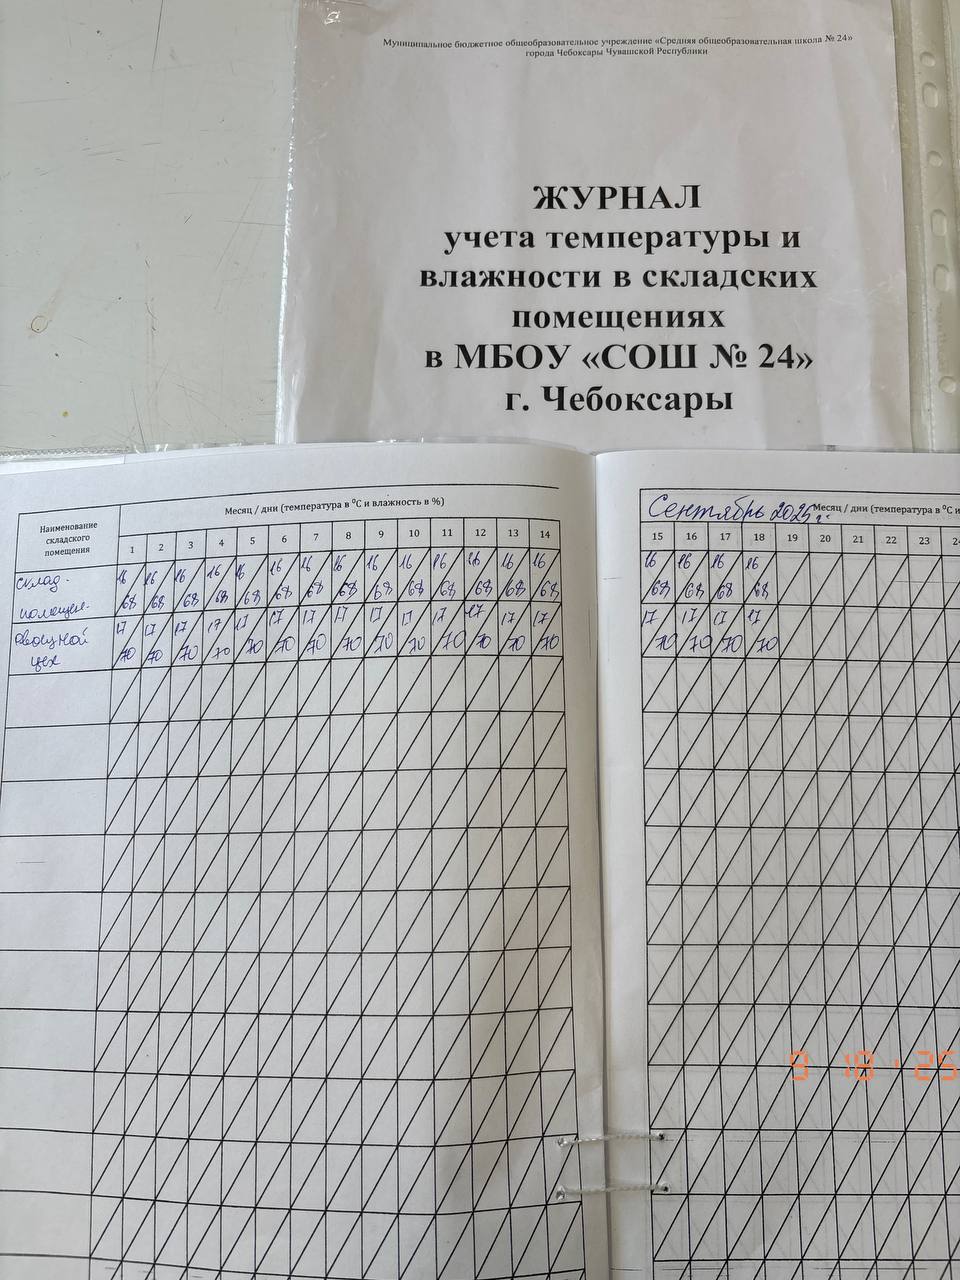 Муниципальное бюджетное общеобразовательное учреждение «Средняя общеобразовательная школа № 24»
города Чебоксары Чувашской Республики
ЖУРНАЛ
учета температуры и
влажности в складских
помещениях
в МБОУ «СОШ № 24»
г. Чебоксары
Наименование складского помещения
Месяц / дни (температура в ⁰С и влажность в %)
1 2 3 4 5 6 7 8 9 10 11 12 13 14
склад.
16 16 16 16 16 16 16 16 16 16 16 16 16 16
помещен.
68 68 68 68 68 68 68 68 68 68 68 68 68 68
овощной
17 17 17 17 17 17 17 17 17 17 17 17 17 17
цех
70 70 70 70 70 70 70 70 70 70 70 70 70 70
Сентябрь 2025 г.
Месяц / дни (температура в ⁰С и
15 16 17 18 19 20 21 22 23 24
16 16 16 16
68 68 68 68
17 17 17 17
70 70 70 70
9 18 '25